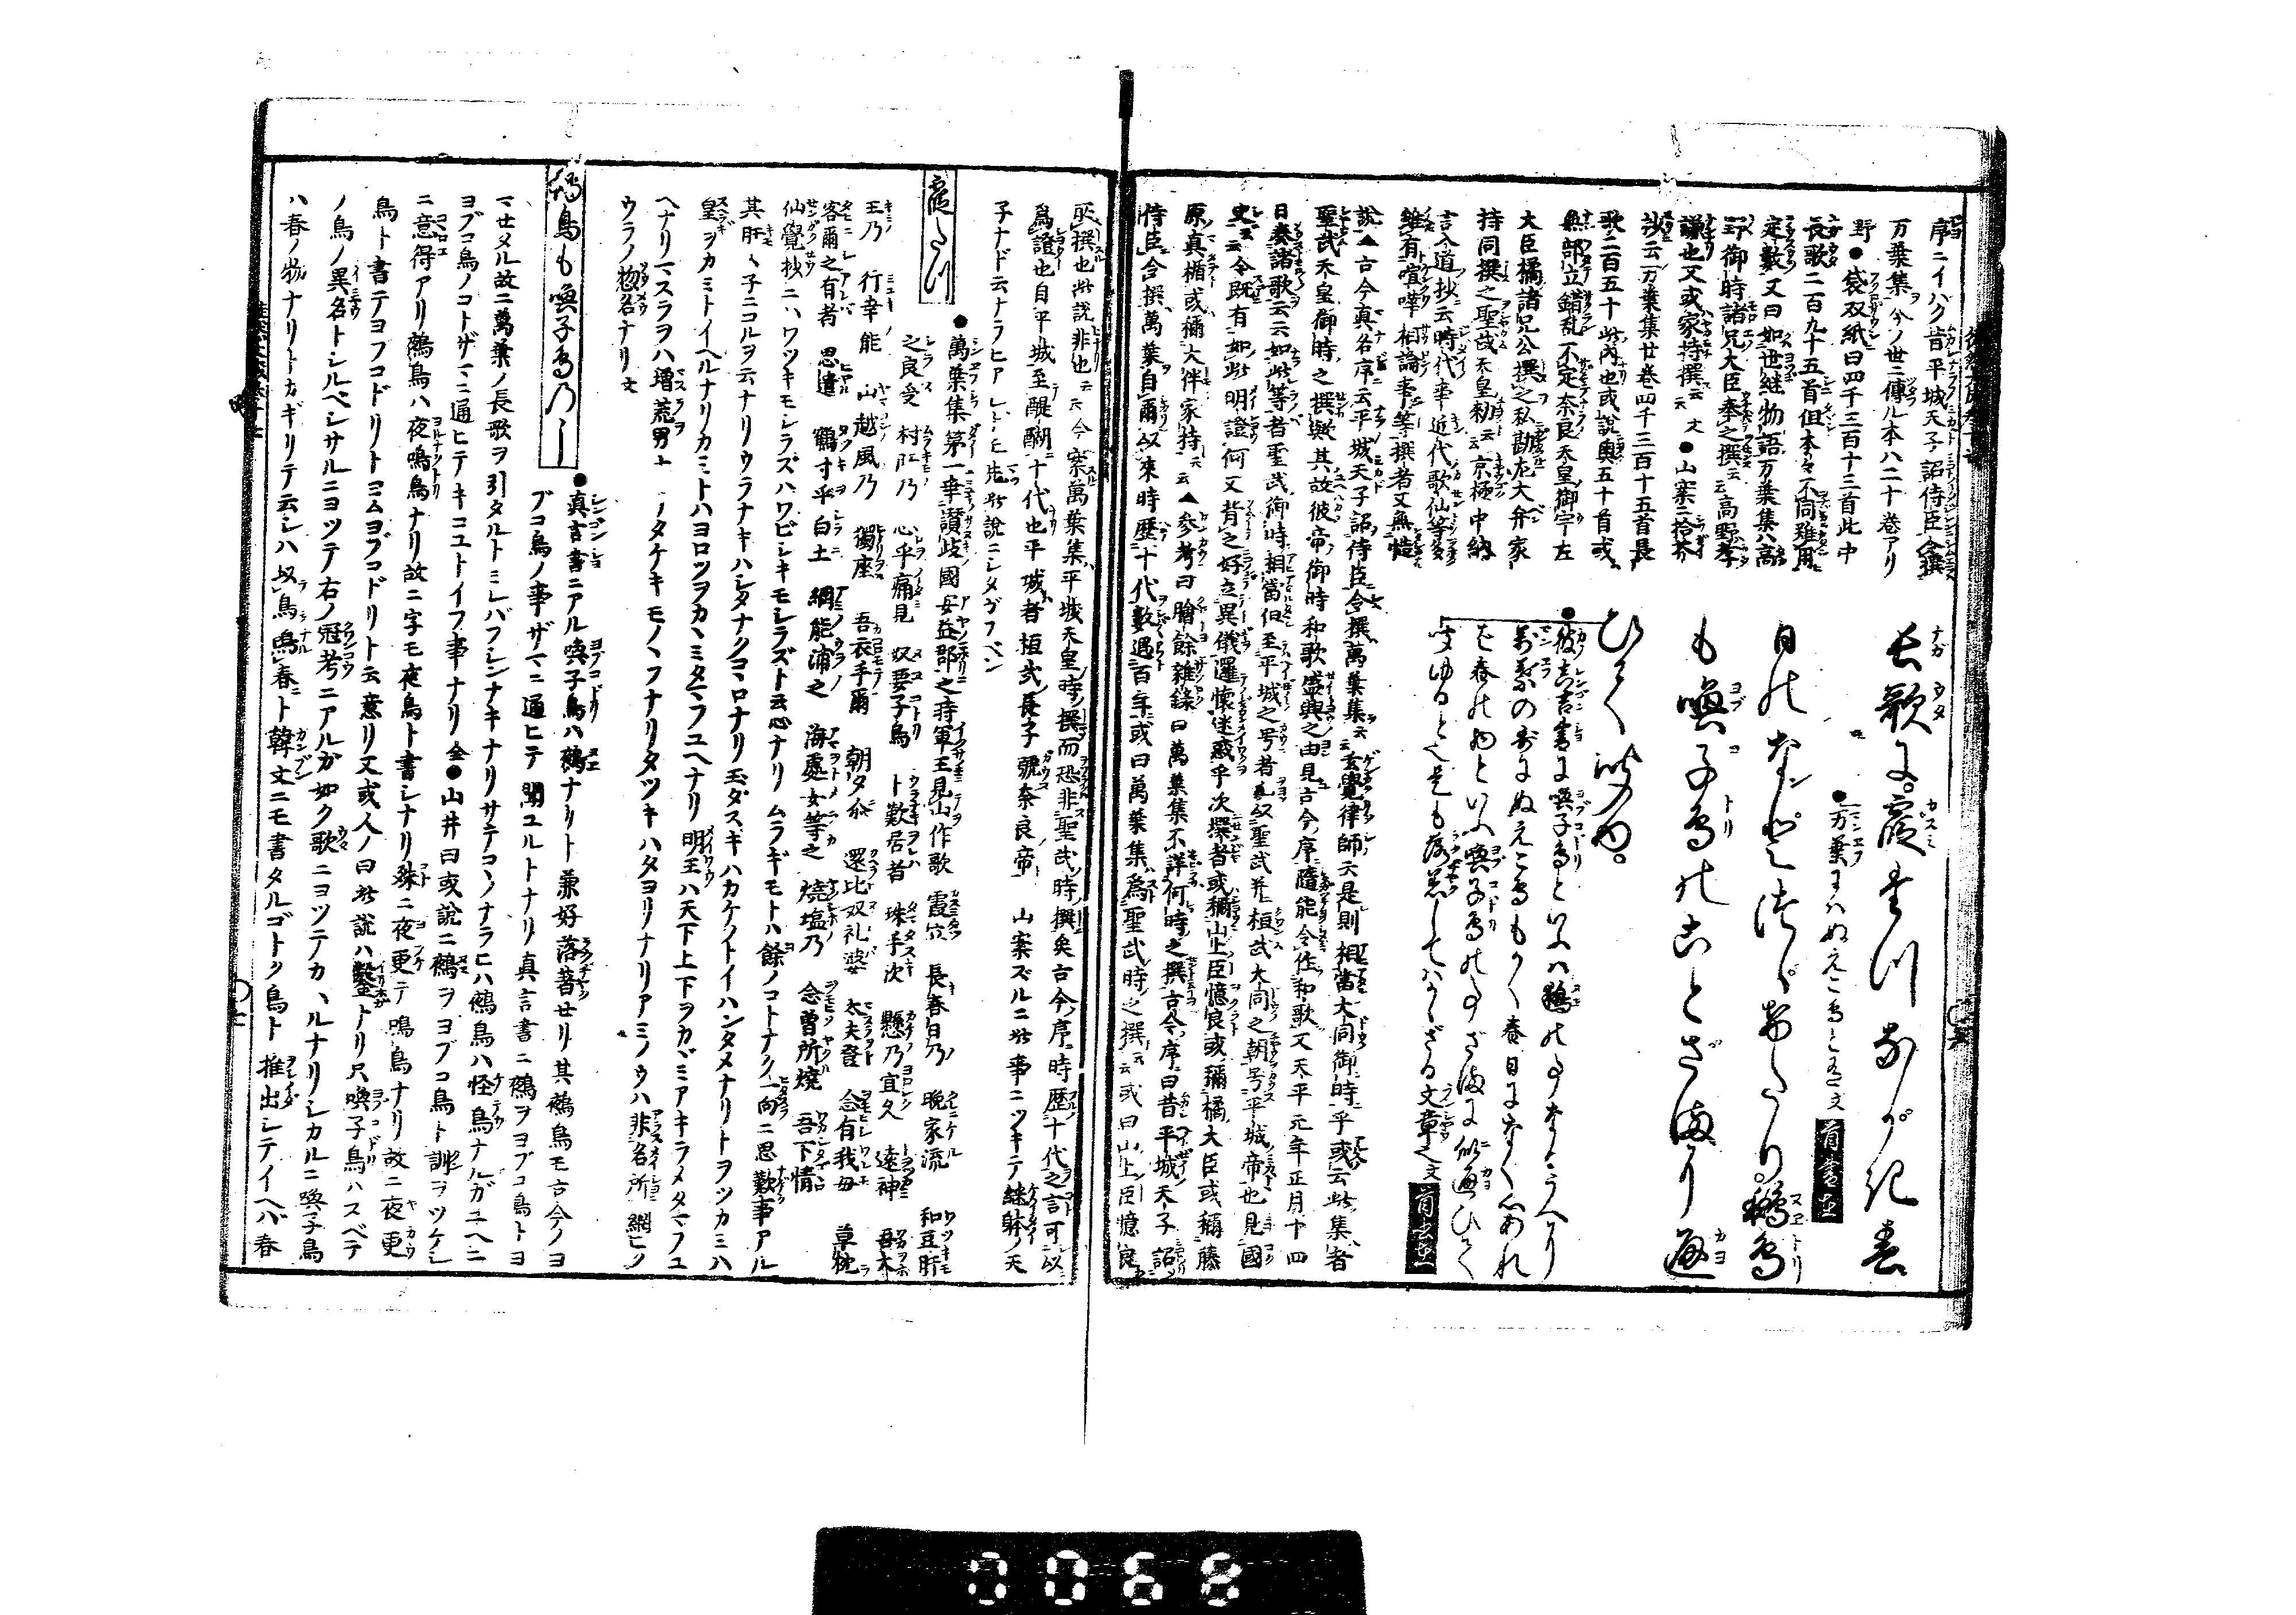 序ニイハク昔平城天子詔侍臣令撰
万葉集ヲ今ノ世ニ傳ル本ハ二十巻アリ
野●袋双紙曰四千三百十三首此中
長歌二百九十五首但本々不同難用
定數又曰如世継物語万葉集ハ高
野御時諸兄大臣奉之撰云云高野孝
謙也又或家持撰云云文●山案ニ拾芥
抄云万葉集廿巻四千三百十五首長
歌二百五十此内也或説奥五十首或
無部立錯乱不定奈良天皇御宇左
大臣橘諸兄公撰之私勘左大弁家
持同撰之聖武天皇勅云云京極中納
言入道抄云時代事近代歌仙等多
雖有喧嘩相論事等撰者又無慥
説▲古今真名序云平城天子詔侍臣令撰萬葉集云云玄覺律師云是則相當大同御時乎或云此集者
聖武天皇御時之撰歟其故彼帝御時和歌盛興之由見古今序隨能令作和歌又天平元年正月十四
日奏諸歌云云如此等者聖武御時相當但至平城之号者聖武并桓武大同之朝号平城帝也見國
史云云令既有如此明證何又背之好之異儀邏懷迷惑乎次撰者或稱山上臣憶良或稱橘大臣或稱藤
原真楯或稱大伴家持云云▲参考曰贍餘雜録曰萬葉集不詳何時之撰古今序曰昔平城天子詔
侍臣令撰萬葉自爾以來時歴十代數過百年或曰萬葉集為聖武時之撰云云或曰山上臣憶良
長歌に。霞たつながき春
●万葉にはぬえこ鳥と有文
日のなどゝつゞけたり。鵺鳥
も喚子鳥のことざまに通
ひて聞ゆ。
●彼真言書に喚子鳥といふは鵺の事なりといへり
万葉の哥にぬえこ鳥もかく春日になくにあれ
ば春の物といふ喚子鳥の事ざまに似通ひて
きゆると也是も落着してはかゝざる文章也文
取撰也此説非也云云今案萬葉集平城天皇時撰而恐非聖武時撰矣古今序時歴十代之言可以
為證也自平城至醍醐十代也平城者桓武長子號奈良帝　山案ズルニ此事ニツキテ継躰ノ天
子ナド云ナラヒアレドモ先此説ニシタガフベシ
霞たつ
●萬葉集第一幸讃岐國安益郡之時軍王見山作歌　霞立　長春日乃　晩家流　和豆肝
之良受　村肝乃　心乎痛見　奴要子鳥　卜歎居者　珠手次　懸乃宜久　遠神　吾大
王乃　行幸能　山越風乃　獨座　吾衣手爾　朝夕尒　還比奴礼婆　大夫登　念有我母　草枕
客爾之有者　思遣　鶴寸乎白土　網能浦之　海處女等之　焼塩乃　念曽所焼　吾下情
仙覺抄ニハワツキモシラズハワビシキモシラズト云心ナリムラギモトハ餘ノコトナク一向ニ思歎事アル
其肝ヽ子ニコルヲ云ナリウラナキハシタナクコヽロナリ玉ダスキハカケントイハンタメナリトヲツカミハ
皇ヲカミトイヘルナリカミトハヨロツヲカヾミタマフユヘナリ明王ハ天下上下ヲカヾミアキラメタマフユ
ヘナリマスラヲハ増荒男ナリタケキモノヽフナリタツキハタヨリナリアミノウハ非名所網ヒク
ウラノ惣名ナリ文
鵺鳥も喚子鳥の云云
●真言書ニアル喚子鳥ハ鵺ナリト兼好落著セリ其鵺鳥モ古今ノヨ
ブコ鳥ノ事ザマニ通ヒテ聞ユルトナリ真言書ニ鵺ヲヨブコ鳥トヨ
マセタル故ニ萬葉ノ長歌ヲ引タルトミレバフシンナキナリサテコヽノナラヒハ鵺鳥ハ怪鳥ナルガユヘニ
ヨブコ鳥ノコトザマニ通ヒテキコユトイフ事ナリ全●山井曰或説ニ鵺ヲヨブコ鳥ト訓ヲツケシ
ニ意得アリ鵺鳥ハ夜鳴鳥ナリ故ニ字モ夜鳥ト書シナリ殊ニ夜更テ鳴鳥ナリ故ニ夜更
鳥ト書テヨフコドリトヨムヨブコドリト云意リ又或人ノ曰此説ハ鑿トリ只喚子鳥ハスベテ
ノ鳥ノ異名トシルベシサルニヨツテ右ノ冠考ニアルガ如ク歌ニヨツテカハルナリシカルニ喚子鳥
ハ春ノ物ナリトカギリテ云シハ以鳥鳴春ト韓文ニモ書タルゴトク鳥ト推出シテイヘバ春